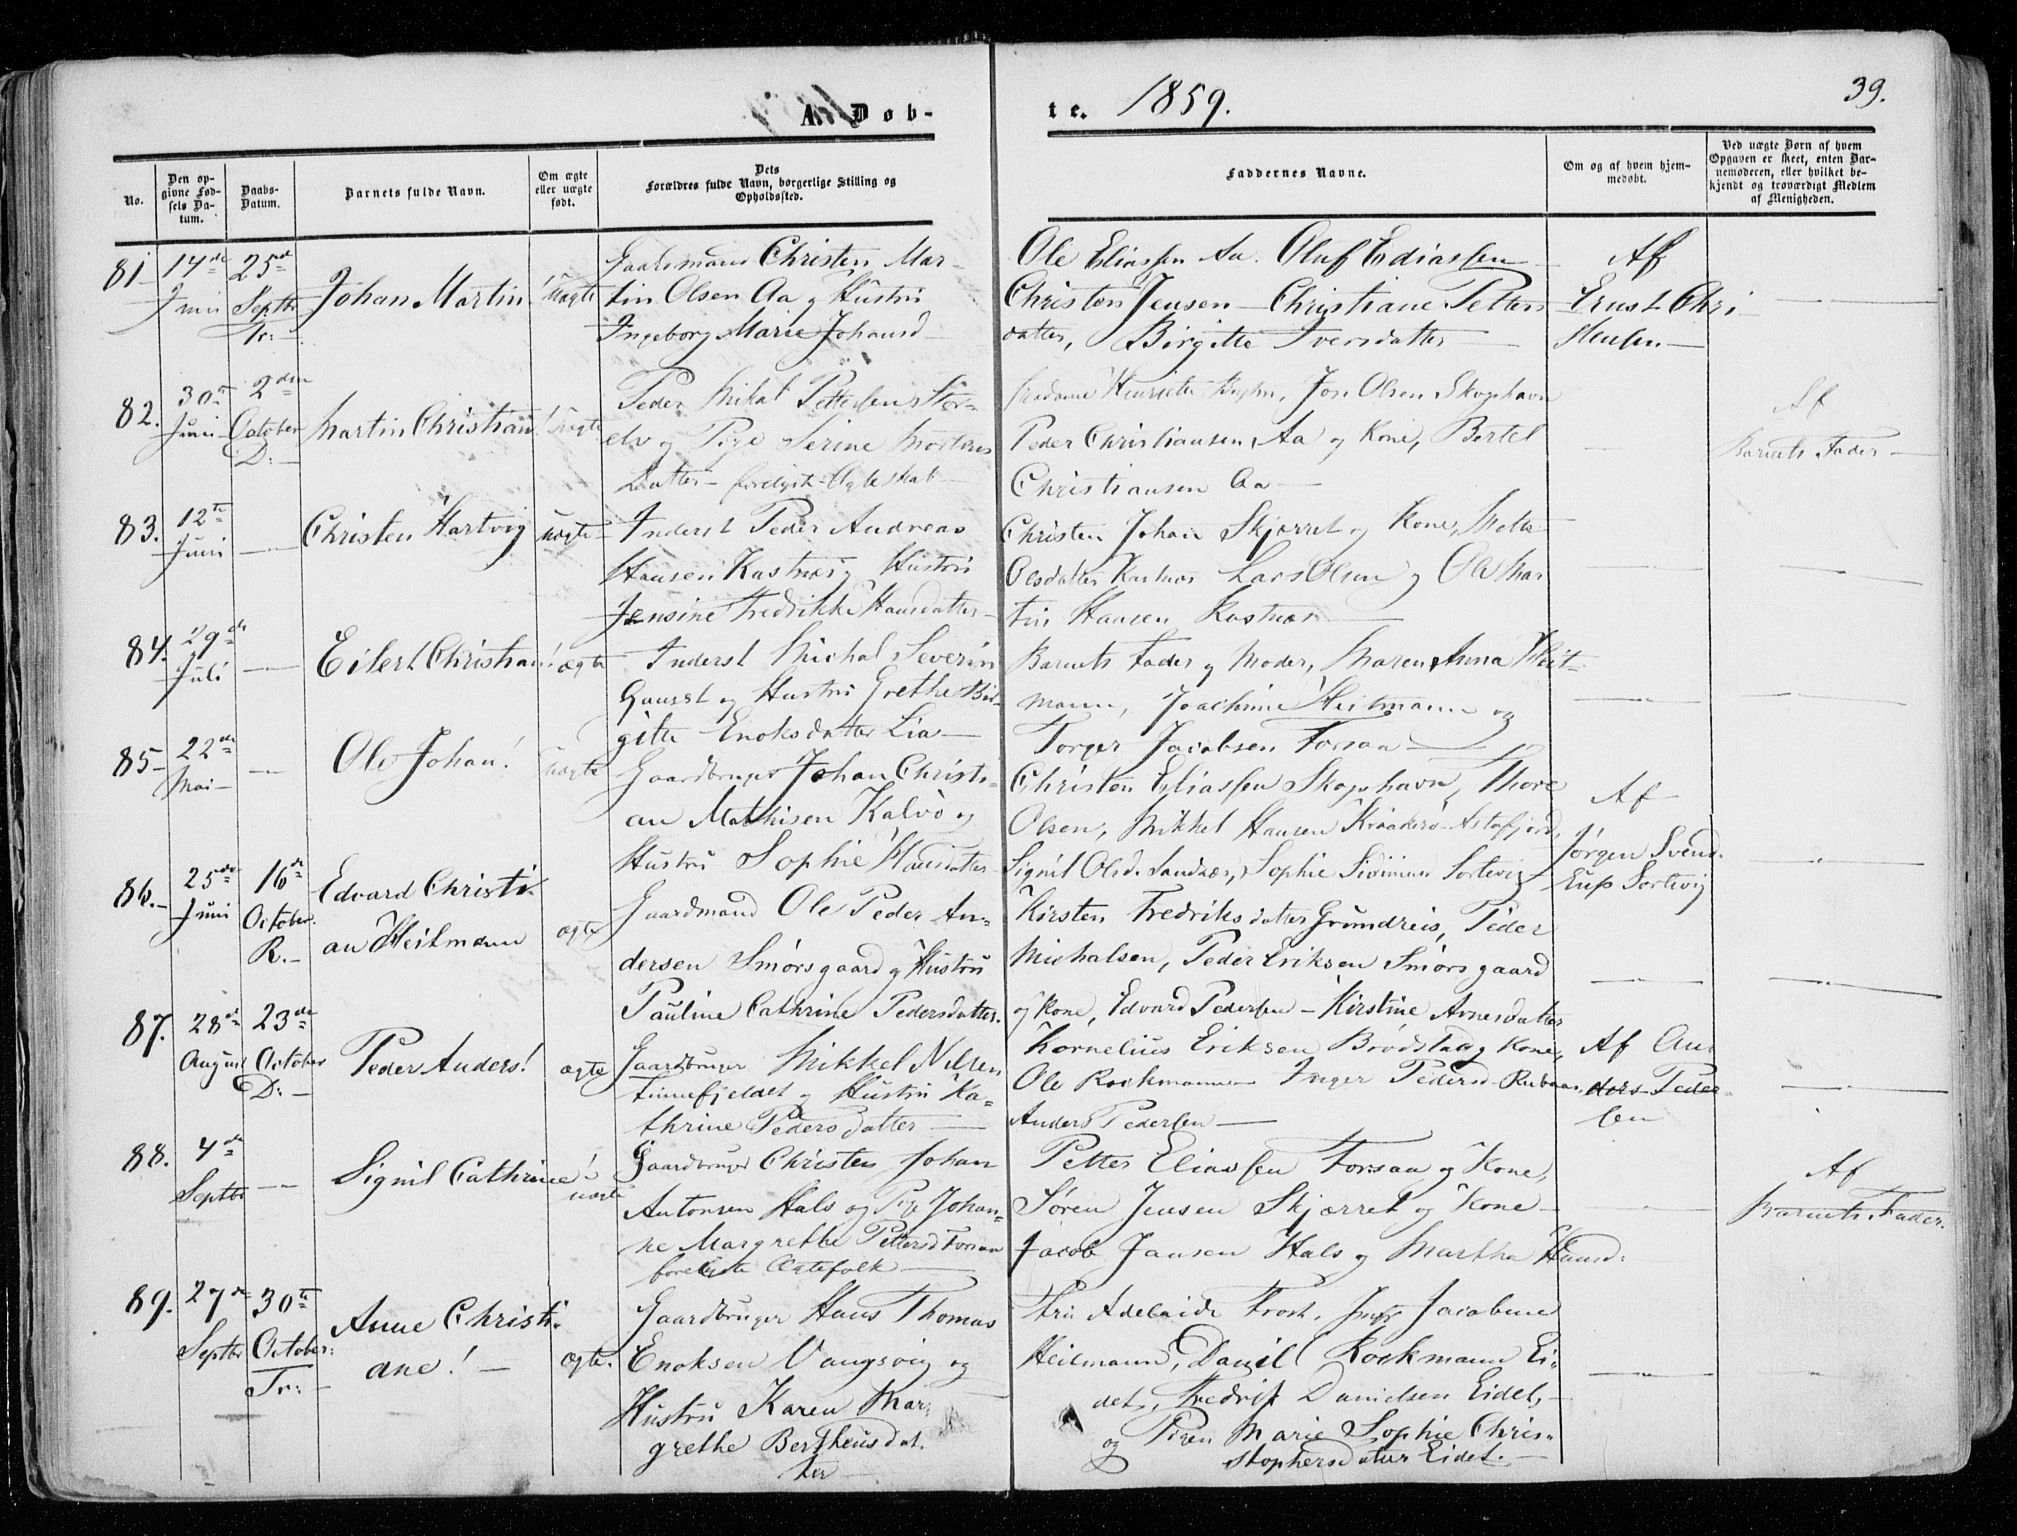 A. Døb-
te. 1859.
39.
No.
Den op-
givne Fød-
sels Da-
tum.
Daabs-
Datum.
Barnets fulde Navn.
Om ægte
eller uægte
født.
Dets
Forældres fulde Navn, borgerlige Stilling og
Opholdssted.
Faddernes Navne.
Om og af hvem hjem-
medøbt.
Ved uægte Børn af hvem
Opgaven er skeet, enten Bar-
nemoderen, eller hvilket be-
kjendt og troværdigt Medlem
af Menigheden.
81
14de
Juni
25de
Septbr
Tr:
Johan Martin!
uægte
Gaardmand Christen Mar-
tin Olsen Aa og Hustru
Ingeborg Marie Johansd
Ole Eliassen Aa. Oluf Ediassen
Christen Jensen - Christiane Petters
datter, Birgitte Iversdatter
Af
Ernst Chri
stensen
82.
30te
Juni
2den
October
D:
Martin Christian!
Uægte
Peder Mikal Pettersen Stor-
elv og Pige Serine Mortens
Datter - forlovet Ægteskab
Madame Henriette, Jon Olsen Skogshavn
Peder Christiansen Aa og Kone, Bertel
Christiansen Aa
Af
Barnets Fader
83.
12te
Juni
Christen Hartvig
uægte
Inderst Peder Andreas
Hansen Kastnæs og Hustru
Jensine Fredrikke Hansdatter
Christen Johan Skjærret og Kone, Mette
Olsdatter Kastnæs Lars Olsen og Ole Mar
tin Hansen Kastnæs
84.
29de
Juli
Eilert Christian!
ægte
Inderst Michal Severin
Gaurst og Hustru Grethe Bir-
gitte Enoksdatter Lia
Barnets Fader og Moder, Maren Anna Heit-
mann, Joachime Heitmann og
Torger Jacobsen Forsaa
85
22de
Mai
Ole Johan!
uægte
Gaardbruger Johan Christi-
an Mathisen Kalvø og
Hustru Sophie Hansdatter
Christen Eliassen Skogshavn, Thore
Olsen, Mikkel Hansen Kraakerø Astafjord,
Signil Olsd. Sandnæs, Sophie Simmi Sortevig
Af
Jørgen Svend.
Sortevig
86.
25de
Juni
16de
October.
R.
Edvard Christi-
an Heitmann
ægte
Gaardmand Ole Peder An-
dersen Smørsgaard og Hustru
Pauline Cathrine Pedersdatter.
Kirsten Fredriksdatter Grundreis, Peder
Michalsen, Peder Eriksen Smørsgaard
og Kone, Edvard Pedersen - Kirstine Arnesdatter
87.
28de
August
23de
October
D:
Peder Anders!
ægte
Gaardbruger Mikkel Nilsen
Finnefjeldet og Hustru Ka-
thrine Pedersdatter
Kornelius Eriksen Brødstad og Kone,
Ole Rockmann Inger Pedersd. Rubaas,
Anders Pedersen
Af An-
ders Peder
sen
88.
4de
Septbr
Signil Cathrine!
uægte
Gaardbruger Christen Johan
Antonsen Hals og Pige Johan-
ne Margrethe Pettersd Forsaa
forlovede Ægtefolk
Petter Eliassen Forsaa og Kone,
Søren Jensen Skjærret og Kone
Jacob Jansen Hals og Martha Hansd:
Af
Barnets Fader.
89.
27de
Septbr
30te
October:
Tr:
Anne Christi-
ane!
ægte.
Gaardbruger Hans Thomas
Enoksen Vangsvig og
Hustru Karen Mar-
grethe Bertheusdat.
ter
Fru Adelaide Frost, Jmfr Jacobine
Heitmann, Daniel Rockmann Ei-
det, Fredrik Danielsen Eidet,
og Pigen Marie Sophie Chris-
stophersdatter Eidet.